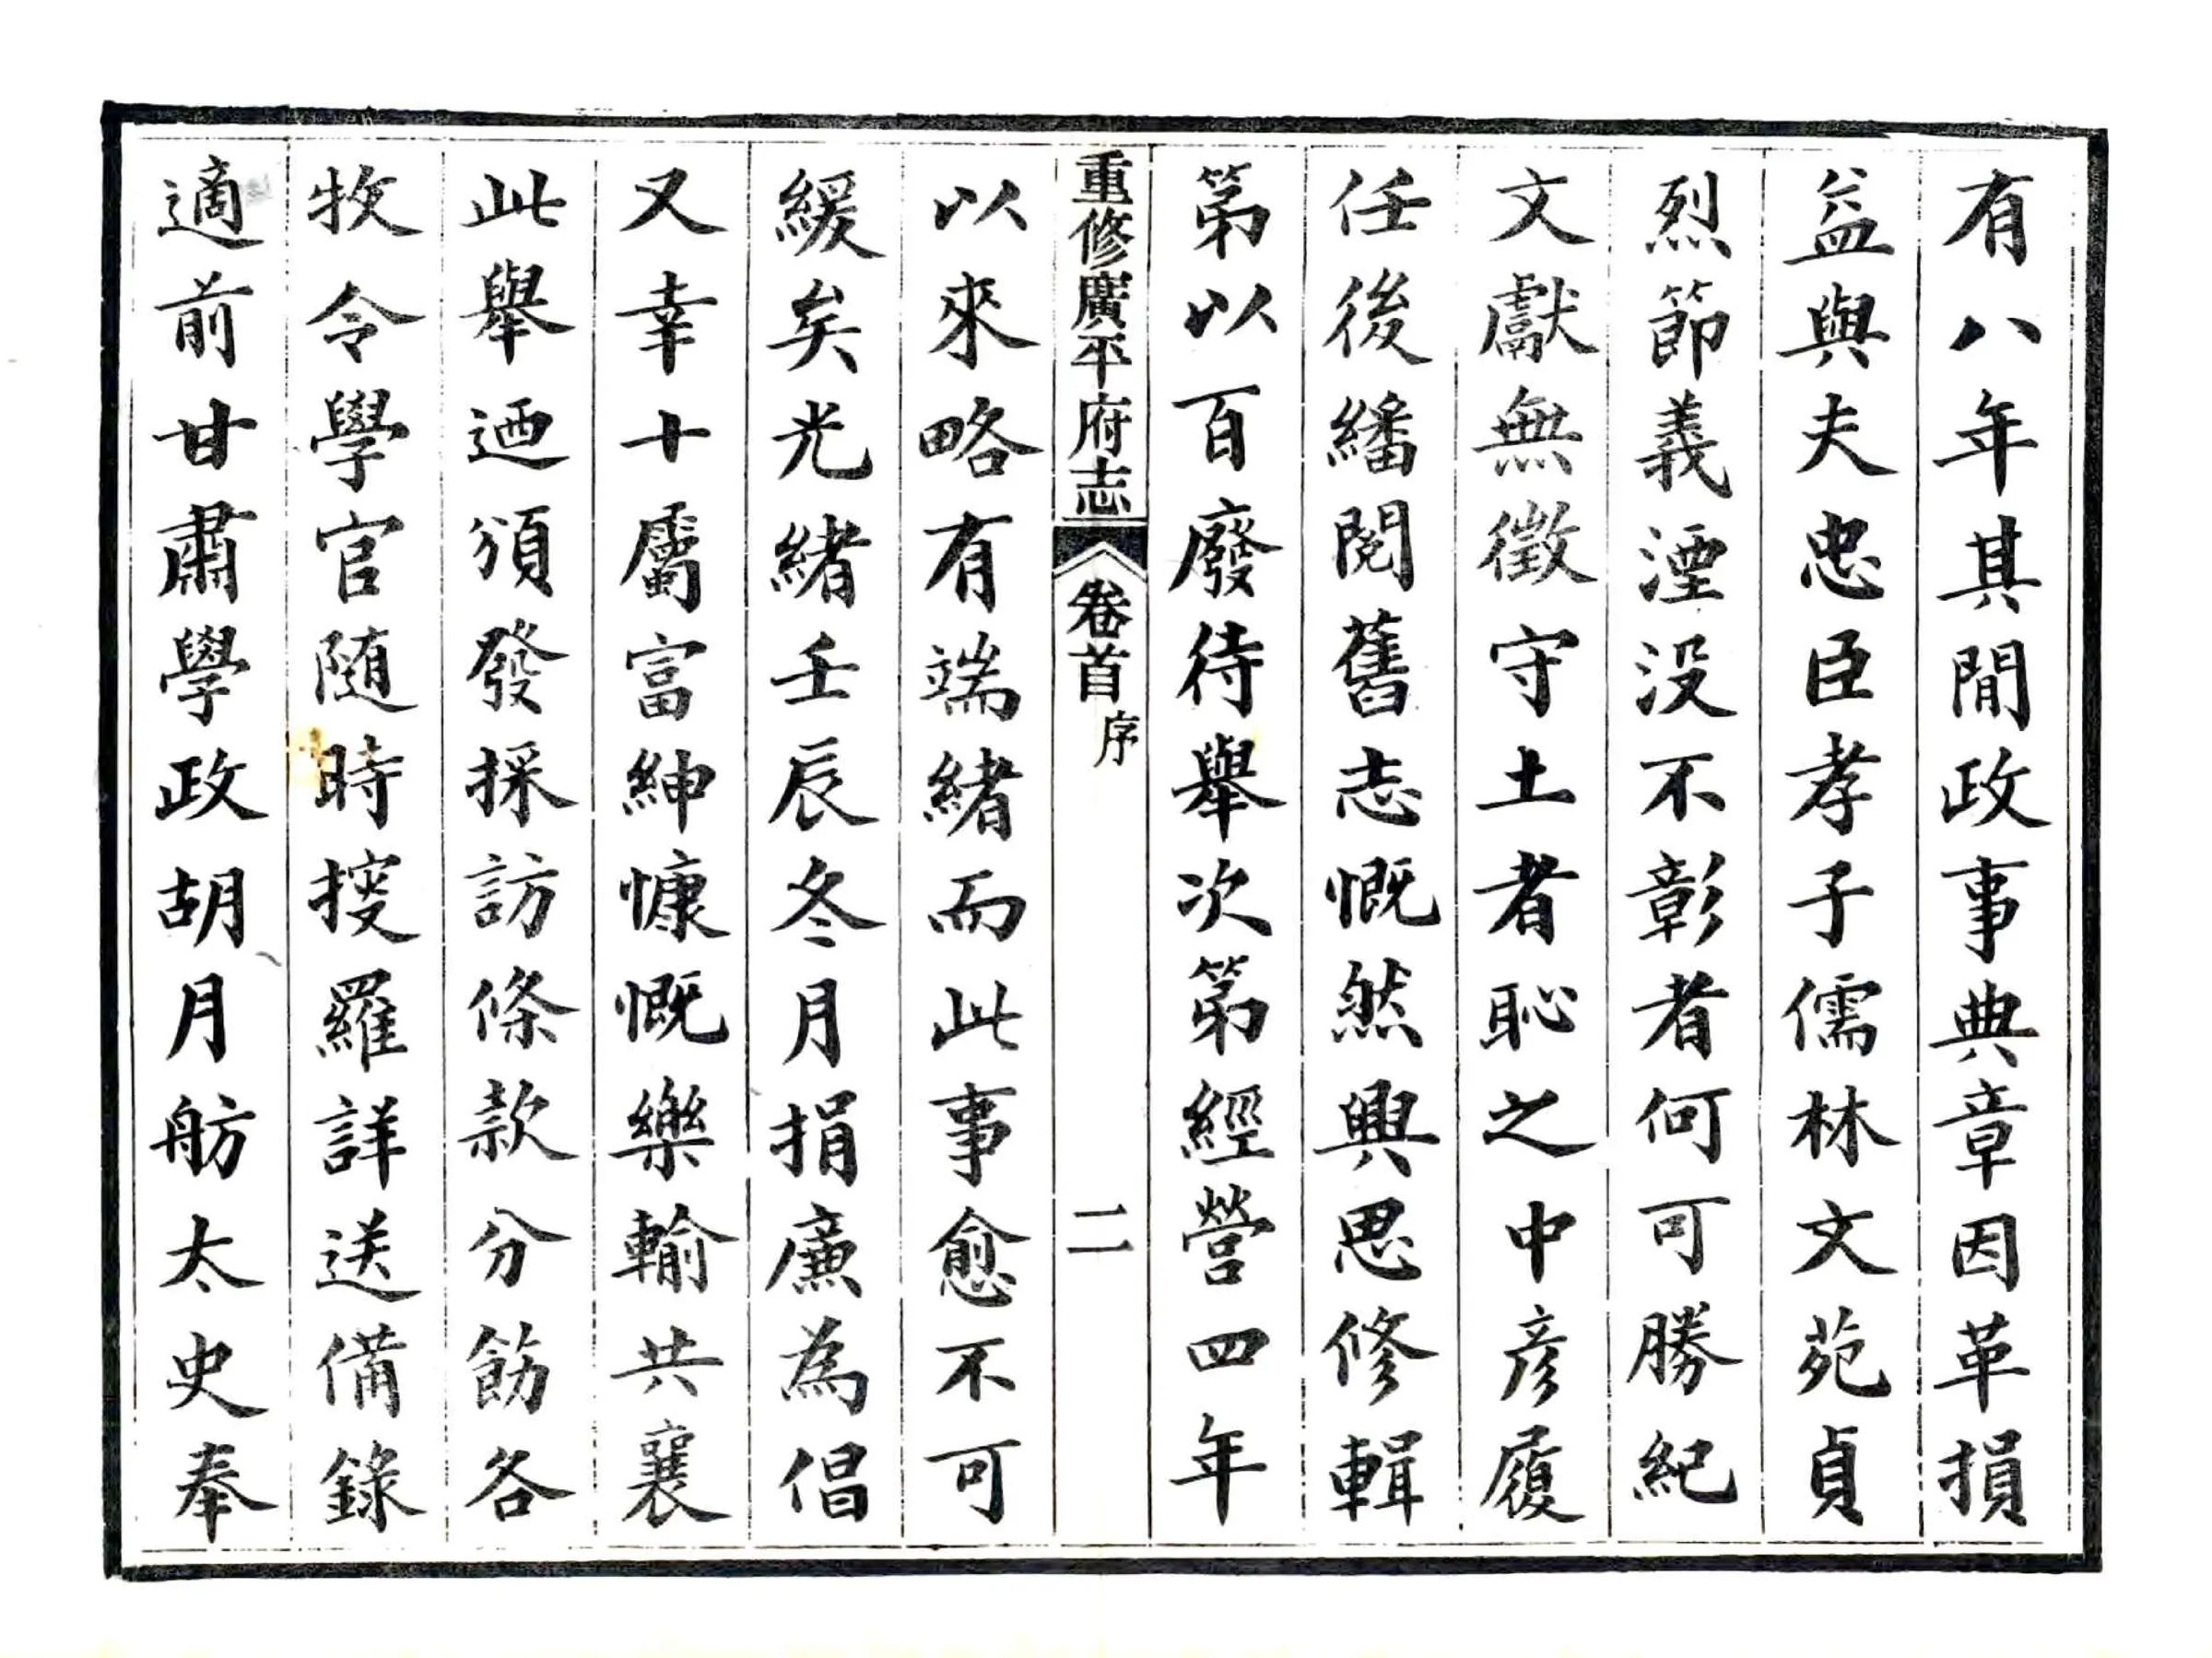 有八年其閒政事典章因革損
益與夫忠臣孝子儒林文苑貞
烈節義湮没不彰者何可勝紀
文獻無徵守土者恥之中彥履
任後繙閱舊志慨然興思修輯
第以百廢待舉次第經營四年
重修廣平府志 卷首 序 二
以來略有端緒而此事愈不可
緩矣光緒壬辰冬月捐廉為倡
又幸十屬富紳慷慨樂輸共襄
此舉迺頒發採訪條款分飭各
牧令學官随時搜羅詳送備錄
適前甘肅學政胡月舫太史奉